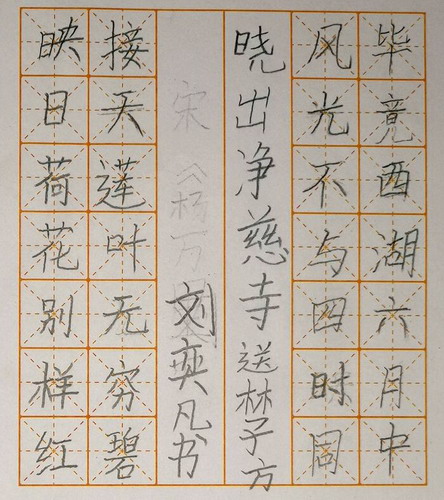 毕竟西湖六月中
风光不与四时周
晓出净慈寺送林子方
宋 杨万
刘奕凡书
接天莲叶无穷碧
映日荷花别样红